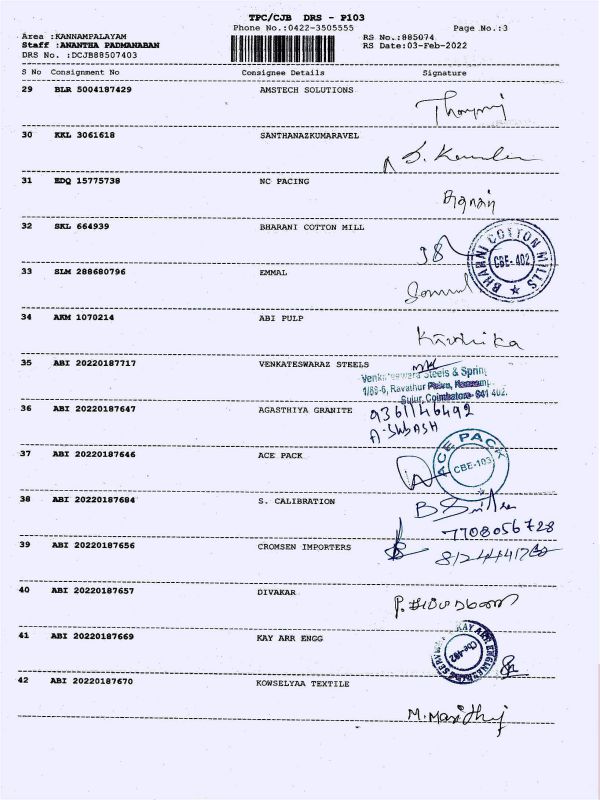 TPC/CJB DRS - P103
Phone No.:0422-3505555 Page No.:3
Area :KANNAMPALAYAM RS No.:885074
Staff :ANANTHA PADMANABAN RS Date:03-Feb-2022
DRS No. :DCJB88507403
S No Consignment No Consignee Details Signature
29 BLR 5004187429 AMSTECH SOLUTIONS
30 KKL 3061618 SANTHANAZKUMARAVEL
31 EDQ 15775738 NC PACING
32 SKL 664939 BHARANI COTTON MILL
BHARNI COTTON MILLS
CBE-402
33 SLM 288680796 EMMAL
34 AKM 1070214 ABI PULP
Karthika
35 ABI 20220187717 VENKATESWARAZ STEELS
Steels & Spring
1/86-6, Ravathur
Sulur, Coimbatore- 641 402.
36 ABI 20220187647 AGASTHIYA GRANITE 9361146492
A-SUBASH
37 ABI 20220187646 ACE PACK
ACE PACK
CBE-103
38 ABI 20220187684 S. CALIBRATION
7708056728
39 ABI 20220187656 CROMSEN IMPORTERS
40 ABI 20220187657 DIVAKAR
41 ABI 20220187669 KAY ARR ENGG
KAY ARR
Cbe-402
42 ABI 20220187670 KOWSELYAA TEXTILE